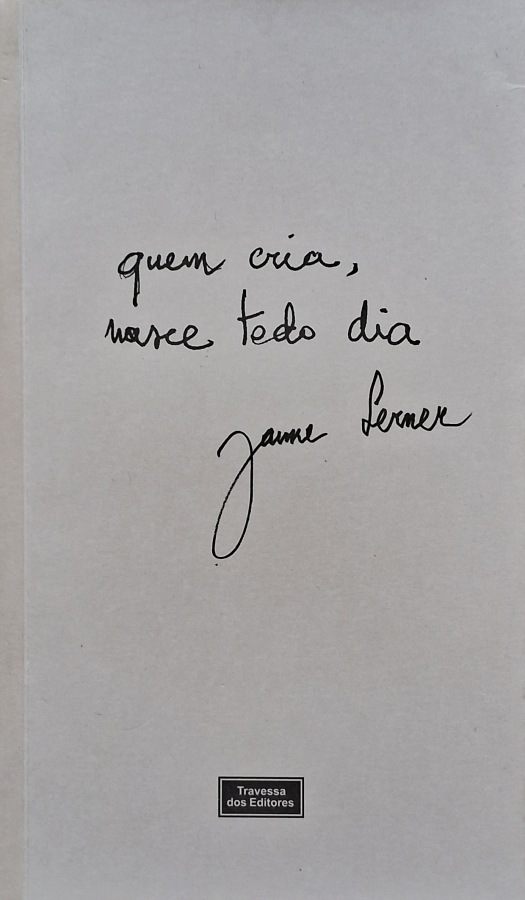 quem cria,
nasce todo dia
Jaime Lerner
Travessa
dos Editores